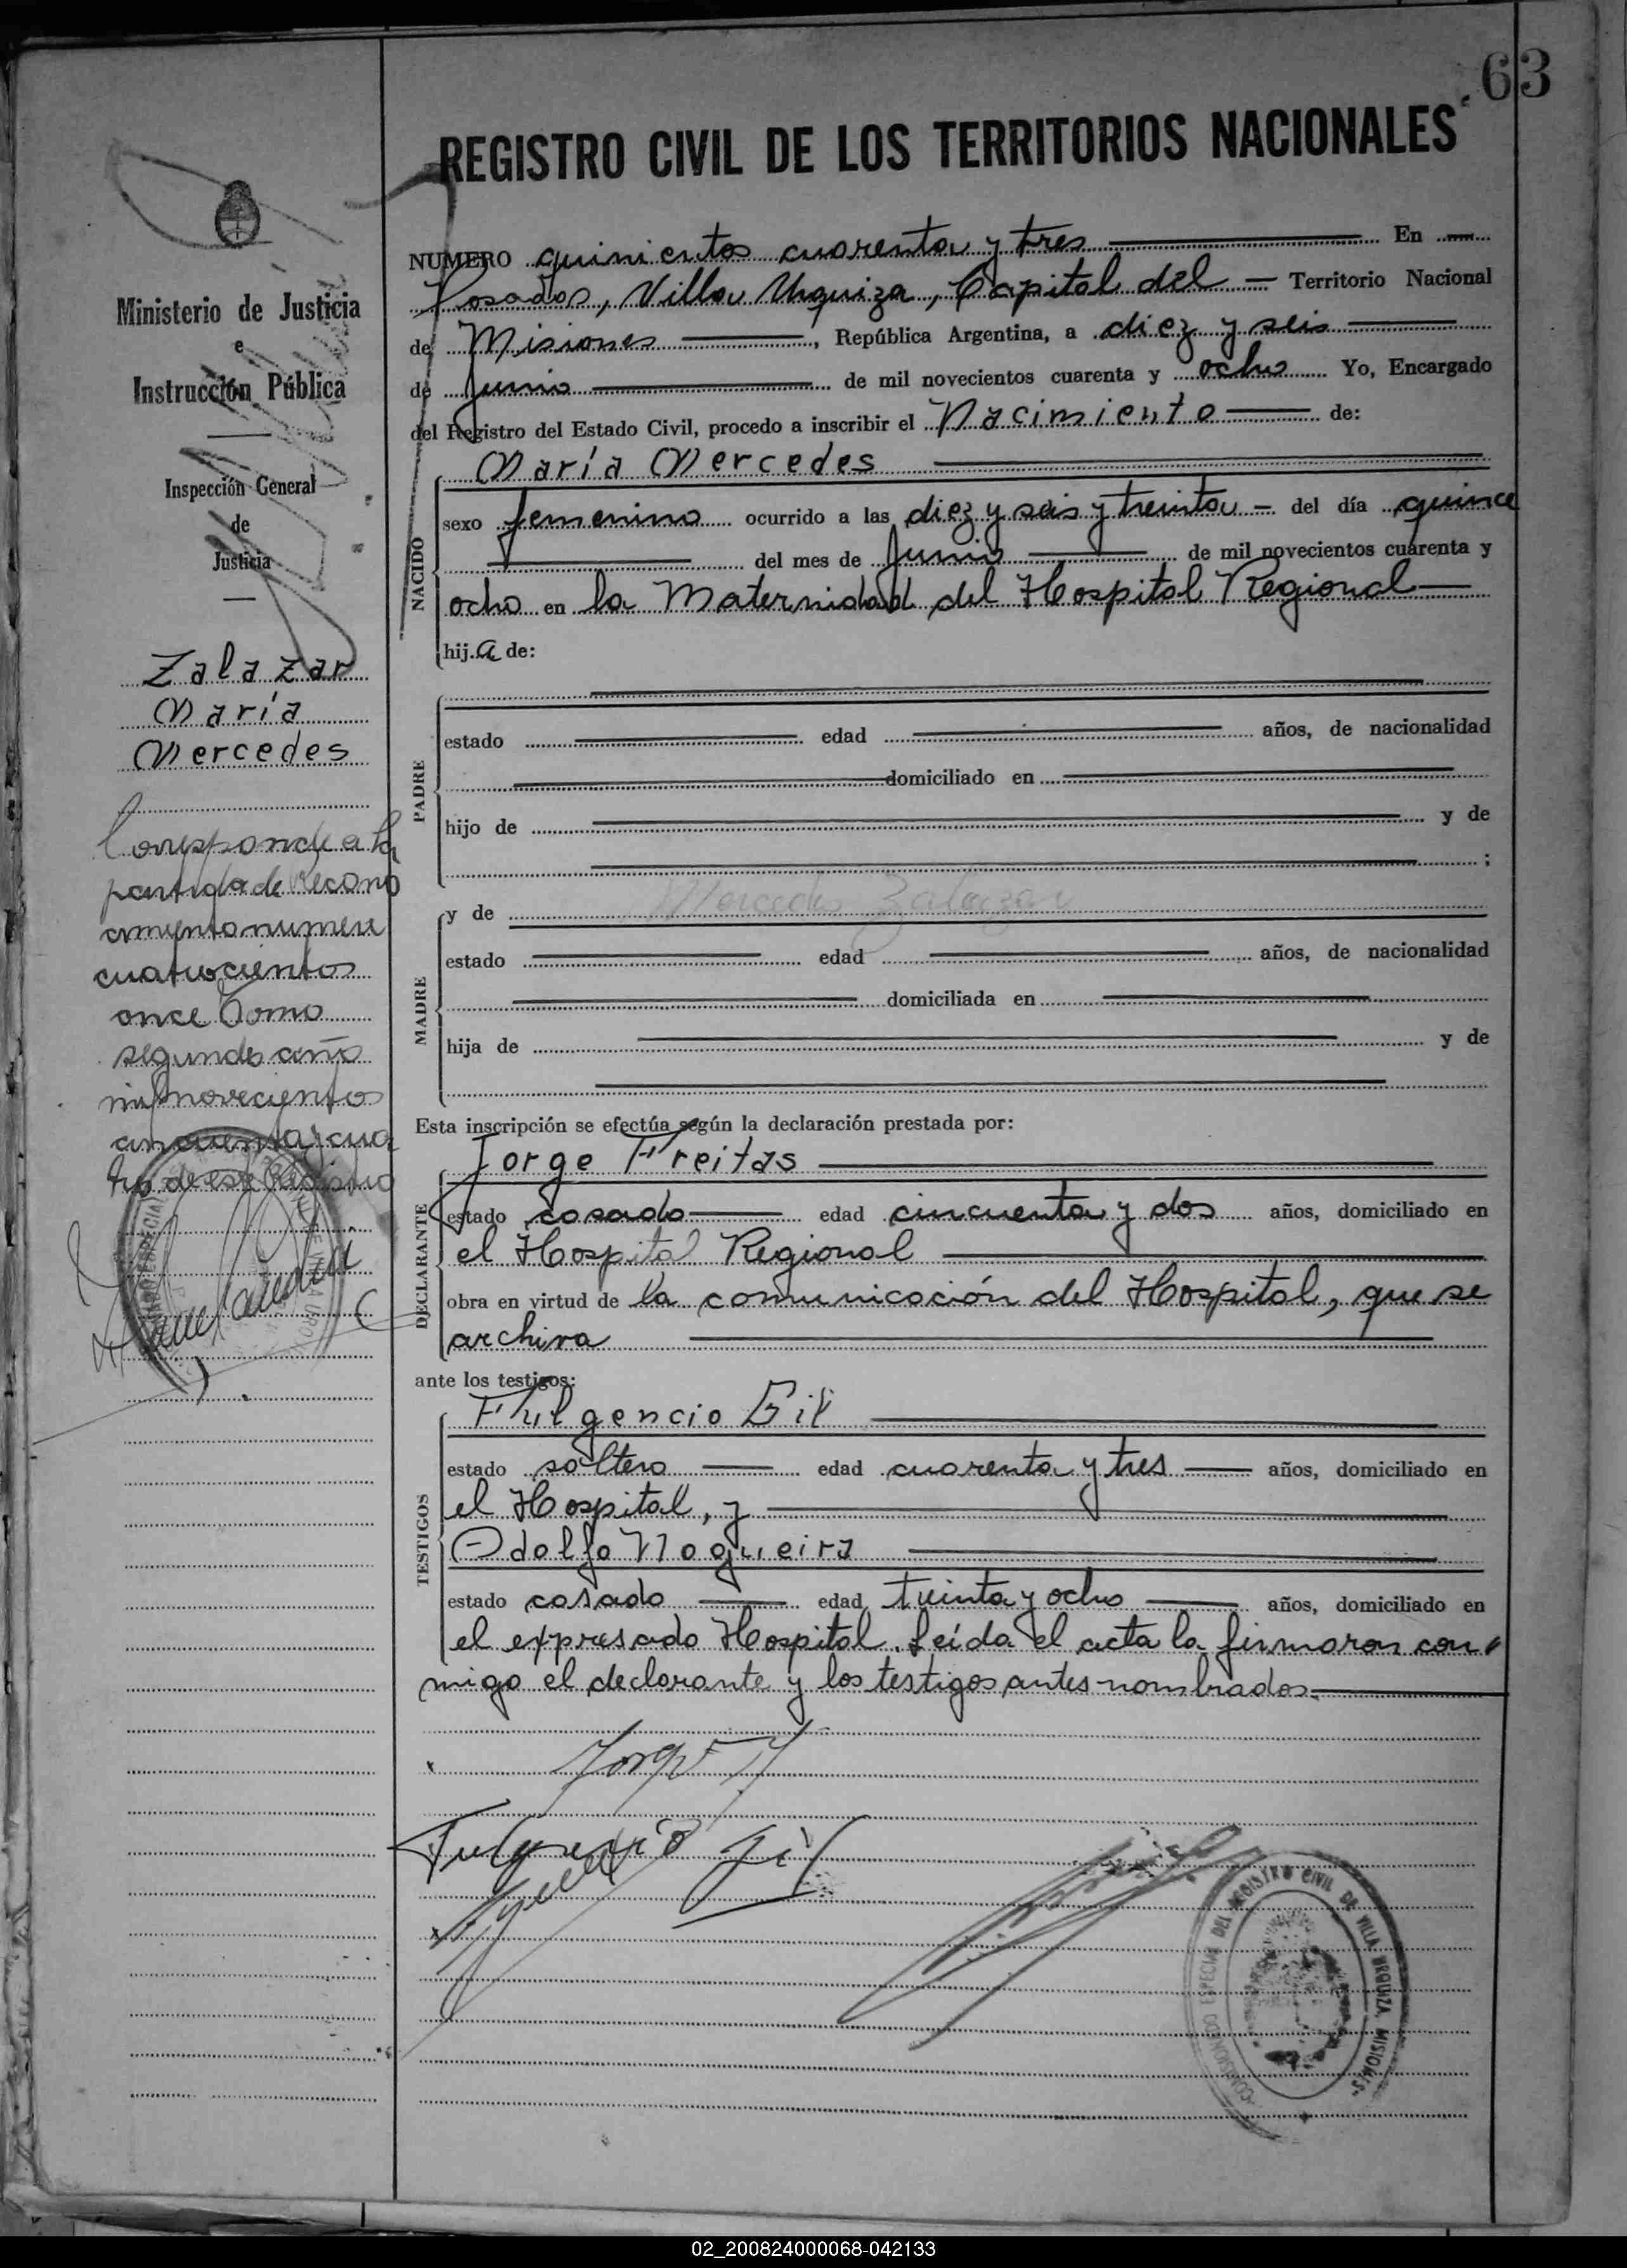 63
REGISTRO CIVIL DE LOS TERRITORIOS NACIONALES
NUMERO quinientos cuarenta y tres En
Posadas, Villa Urquiza, Capital del Territorio Nacional
de Misiones, República Argentina, a diez y seis
de Junio de mil novecientos cuarenta y ocho Yo, Encargado
del Registro del Estado Civil, procedo a inscribir el Nacimiento de:
María Mercedes
sexo femenino ocurrido a las diez y seis y treinta del día quince
del mes de Junio de mil novecientos cuarenta y
ocho en la Maternidad del Hospital Regional
hija de:
NACIDO
estado edad años, de nacionalidad
domiciliado en
hijo de y de
;
PADRE
y de Mercedes Zalazar
estado edad años, de nacionalidad
domiciliada en
hija de y de
MADRE
Esta inscripción se efectúa según la declaración prestada por:
Jorge Freitas
estado casado edad cincuenta y dos años, domiciliado en
el Hospital Regional
obra en virtud de la comunicación del Hospital, que se
archiva
DECLARANTE
ante los testigos:
Fulgencio Gil
estado soltero edad cuarenta y tres años, domiciliado en
el Hospital, y
Adolfo Nogueira
estado casado edad treinta y ocho años, domiciliado en
el expresado Hospital. Leída el acta la firmaron con
migo el declarante y los testigos antes nombrados.
TESTIGOS
Fulgencio Gil
COMISIONADO ESPECIAL DEL REGISTRO CIVIL DE VILLA URQUIZA, MISIONES
Ministerio de Justicia
e
Instrucción Pública
Inspección General
de
Justicia
Zalazar
María
Mercedes
Corresponde a la
partida de recono
cimiento numero
cuatrocientos
once Tomo
segundo año
mil novecientos
cincuenta y cua
tro de este Registro
02_200824000068-042133